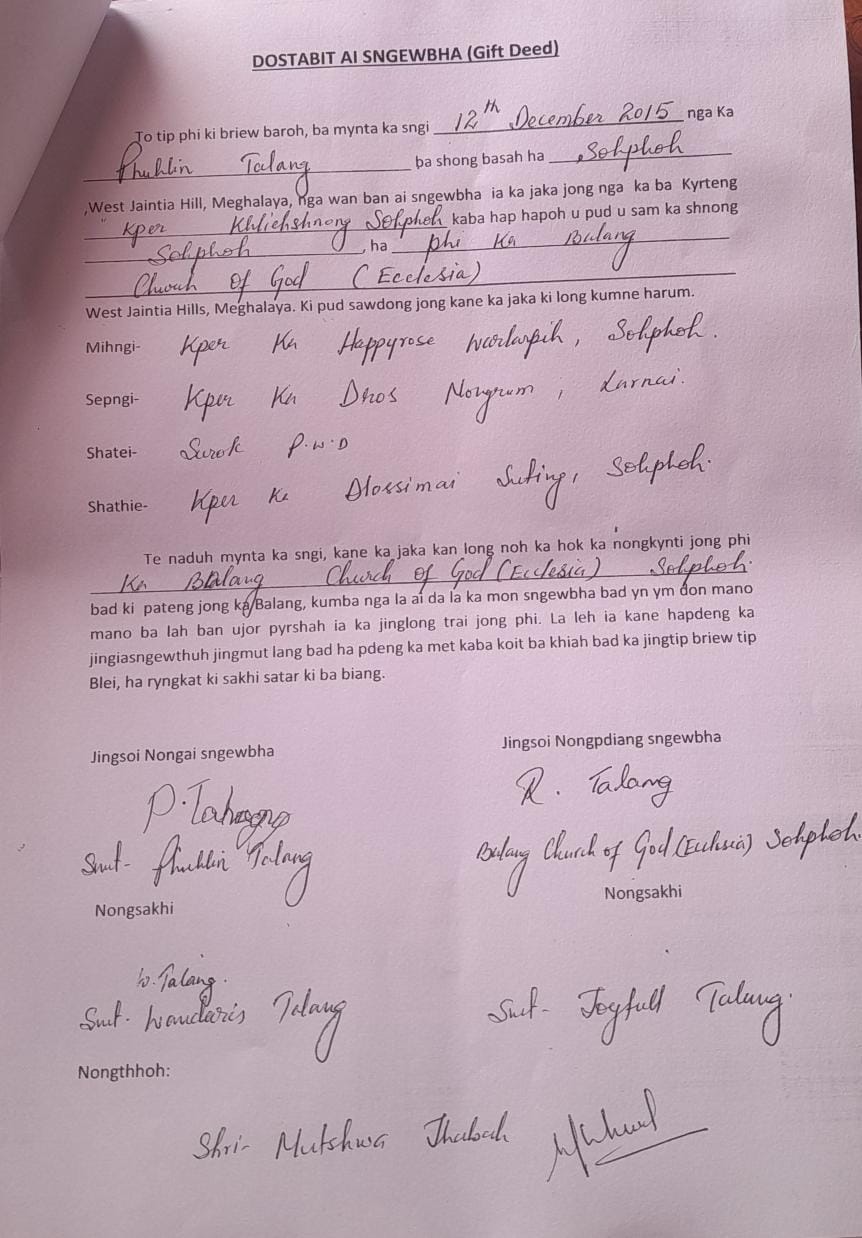 DOSTABIT AI SNGEWBHA (Gift Deed)
To tip phi ki briew baroh, ba mynta ka sngi 12th December 2015 nga Ka
Phuhlin Talang ba shong basah ha Sohphoh
,West Jaintia Hill, Meghalaya, nga wan ban ai sngewbha ia ka jaka jong nga ka ba Kyrteng
" Kper Khliehshnong Sohphoh kaba hap hapoh u pud u sam ka shnong
Sohphoh , ha phi Ka Balang
Church Of God (Ecclesia)
West Jaintia Hills, Meghalaya. Ki pud sawdong jong kane ka jaka ki long kumne harum.
Mihngi- Kper Ka Happyrose , Sohphoh.
Sepngi- Kper Ka Nongrum , Larnai.
Shatei- Surok P.W.D
Shathie- Kper Ka Suting, Sohphoh.
Te naduh mynta ka sngi, kane ka jaka kan long noh ka hok ka nongkynti jong phi
Ka Balang Church of God (Ecclesia) Sohphoh.
bad ki pateng jong ka Balang, kumba nga la ai da la ka mon sngewbha bad yn ym don mano
mano ba lah ban ujor pyrshah ia ka jinglong trai jong phi. La leh ia kane hapdeng ka
jingiasngewthuh jingmut lang bad ha pdeng ka met kaba koit ba khiah bad ka jingtip briew tip
Blei, ha ryngkat ki sakhi satar ki ba biang.
Jingsoi Nongai sngewbha
Jingsoi Nongpdiang sngewbha
R. Talang
Smt- Phuhlin Talang
Balang Church of God (Ecclesia) Sohphoh.
Nongsakhi
Nongsakhi
W. Talang.
Smt- Wandaris Talang
Smt- Joyfull Talang.
Nongthhoh:
Shri- Mutshwa Thabah